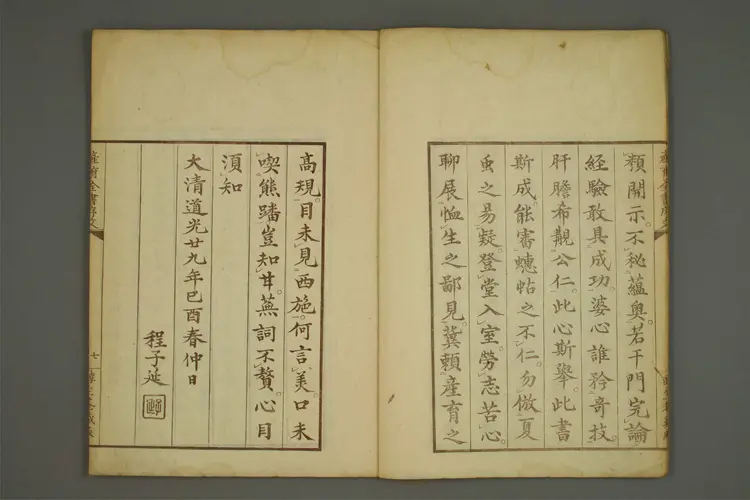 類開示。不秘蘊奧。若干門完論
經驗敢具成功。婆心誰矜奇技。
肝膽希覯公仁。此心斯舉。此書
斯成。能審蟪蛄之不仁。勿倣夏
虫之易疑。登堂入室。勞志苦心。
聊展恤生之鄙見。冀賴產育之
高規。目未見西施。何言美。口未
喫熊蹯。豈知甘。蕪詞不贅。心目
須知
大清道光廿九年巳酉春仲日
程子延
產育全書序文
七